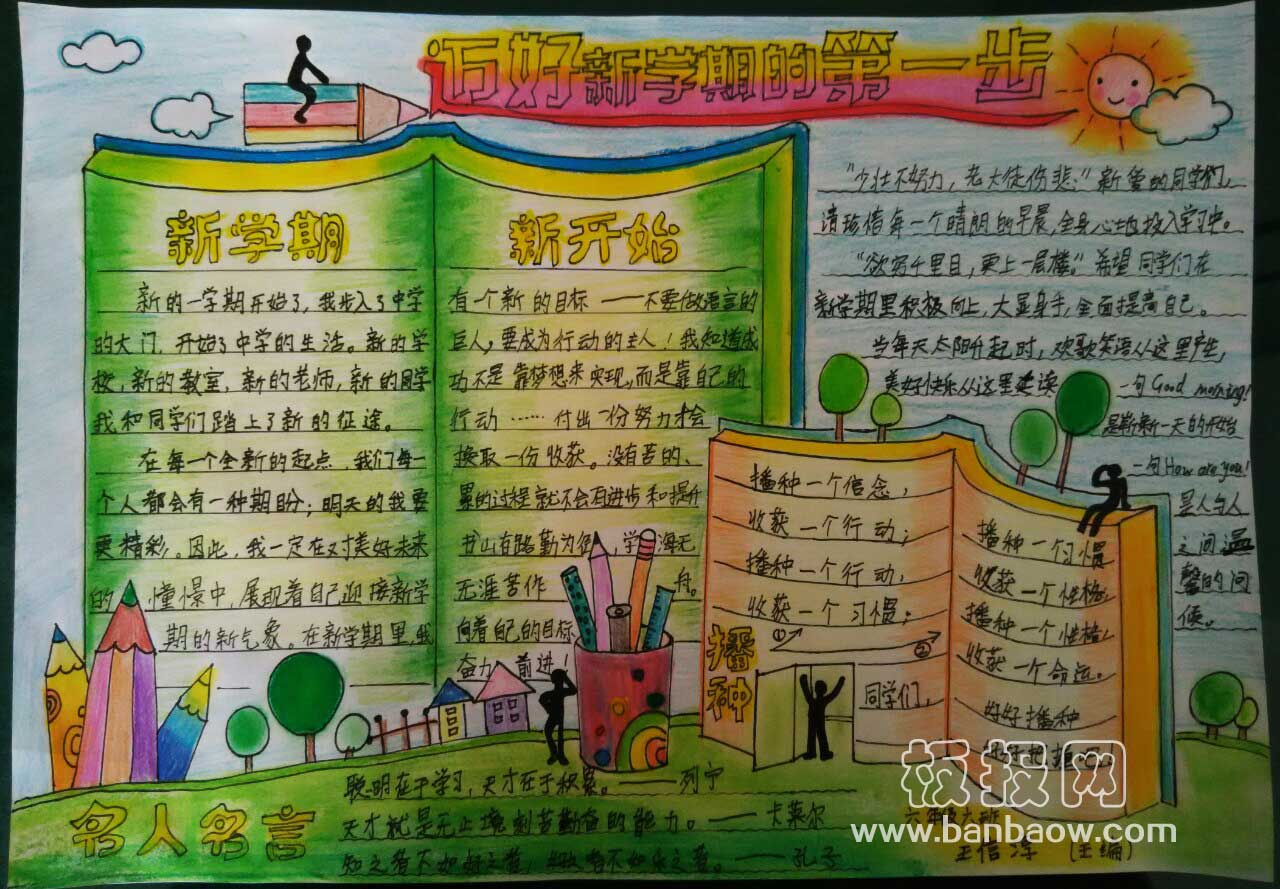 迈好新学期的第一步
新学期
新的一学期开始了，我步入了中学
的大门，开始了中学的生活。新的学
校，新的教室，新的老师，新的同学
我和同学们踏上了新的征途。
在每一个全新的起点，我们每一
个人都会有一种期盼；明天的我要
更精彩。因此，我一定在对美好未来
的憧憬中，展现着自己迎接新学
期的新气象。在新学期里，我
新开始
有一个新的目标——不要做语言的
巨人，要成为行动的主人！我知道成
功不是靠梦想来实现，而是靠自己的
行动……付出一份努力才会
换取一份收获。没有苦的、
累的过程就不会有进步和提升
书山有路勤为径，学海无
无涯苦作舟。
向着自己的目标
奋力前进！
“少壮不努力，老大徒伤悲。”新爱的同学们，
请珍惜每一个晴朗的早晨，全身心地投入学习中。
“欲穷千里目，更上一层楼。”希望同学们在
新学期里积极向上，大显身手，全面提高自己。
当每天太阳升起时，欢歌笑语从这里产生，
美好快乐从这里
一句Good morning!
是崭新一天的开始
一句How are you!
是人与人
之间温
馨的问
候。
播种一个信念，
收获一个行动；
播种一个行动，
收获一个习惯；
播种
①
②
同学们，
播种一个习惯
收获一个性格，
播种一个性格，
收获一个命运。
好好播种
名人名言
聪明在于学习，天才在于积累。——列宁
天才就是无止境刻苦勤奋的能力。——卡莱尔
知之者不如好之者，好之者不如乐之者。——孔子
王信淳（主编）
板报网
www.banbaow.com